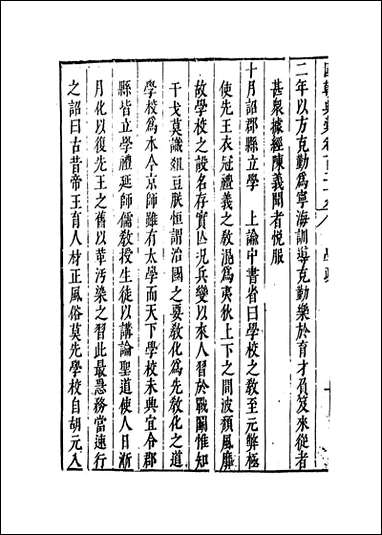 國朝典彙卷百二十九 學政 十
二年以方克勤爲寧海訓導克勤樂於育才負笈來從者
甚衆據經陳義聞者悅服
十月詔郡縣立學 上諭中書省曰學校之教至元弊極
使先王衣冠禮義之教混爲夷狄上下之間波頹風靡
故學校之設名存實亡况兵變以來人習於戰鬭惟知
干戈莫識俎豆朕恒謂治國之要教化爲先教化之道
學校爲本今京師雖有太學而天下學校未興宜令郡
縣皆立學禮延師儒教授生徒以講論聖道使人日漸
月化以復先王之舊以革汚染之習此最急務當速行
之詔曰古昔帝王育人材正風俗莫先學校自胡元入